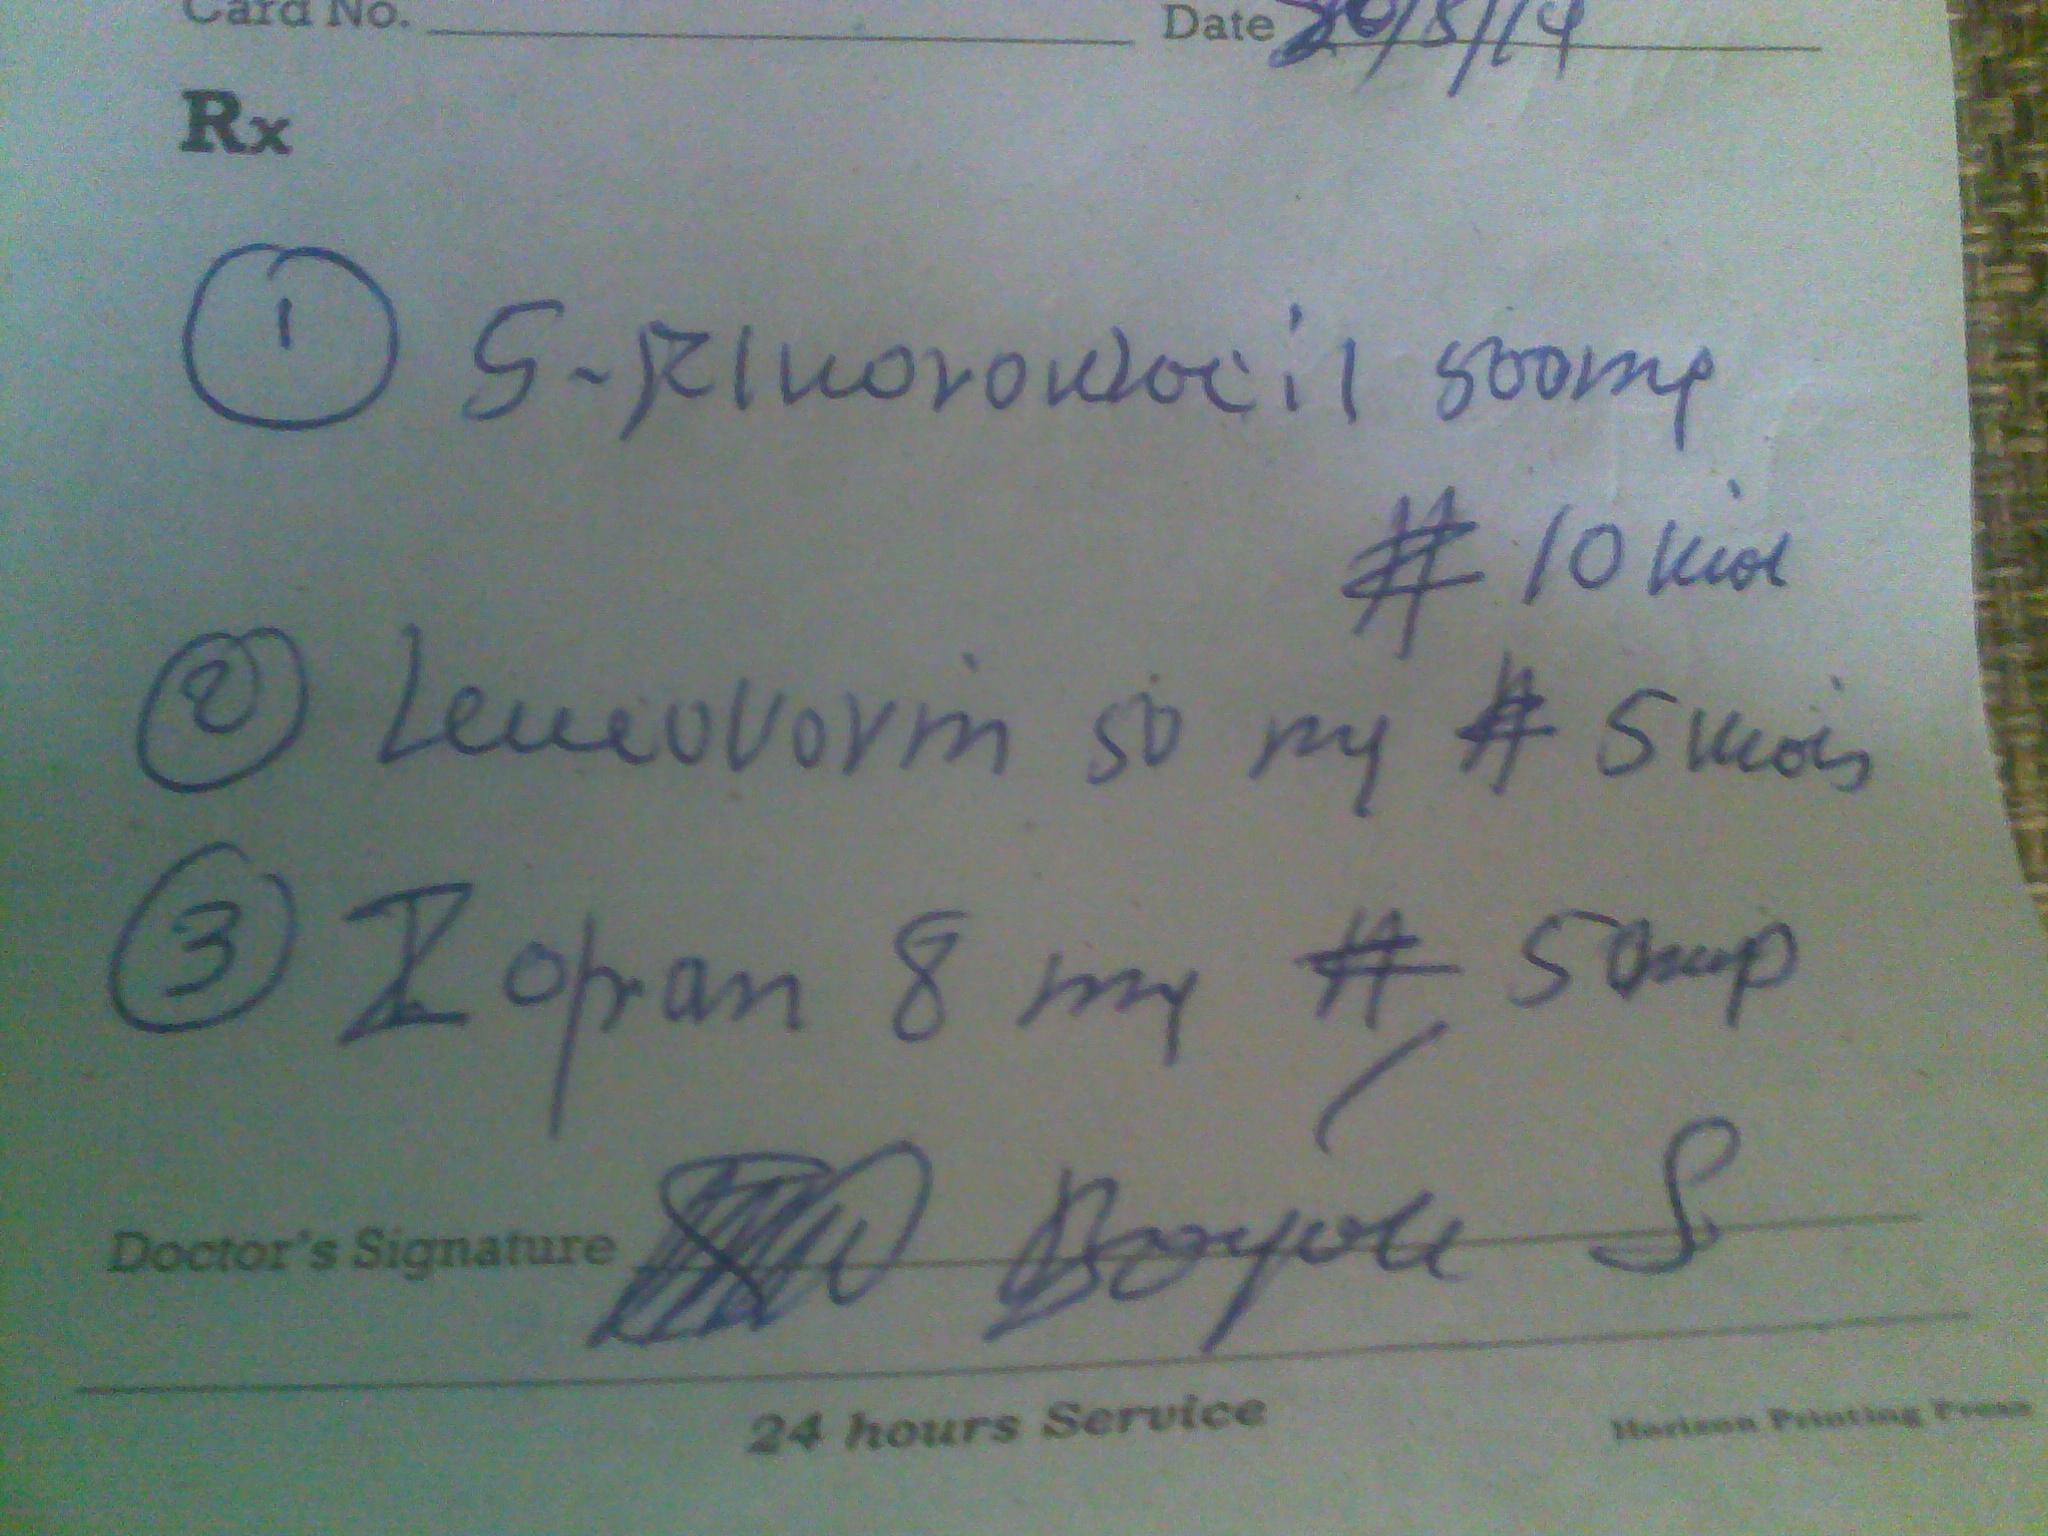 Card No. Date 20/8/14
Rx
① 5-Fluorouracil 500mg
# 10 vial
② Leucovorin 50 mg # 5 vials
③ Zopran 8 mg # 5 amp
Doctor's Signature
24 hours Service
Horizon Printing Press